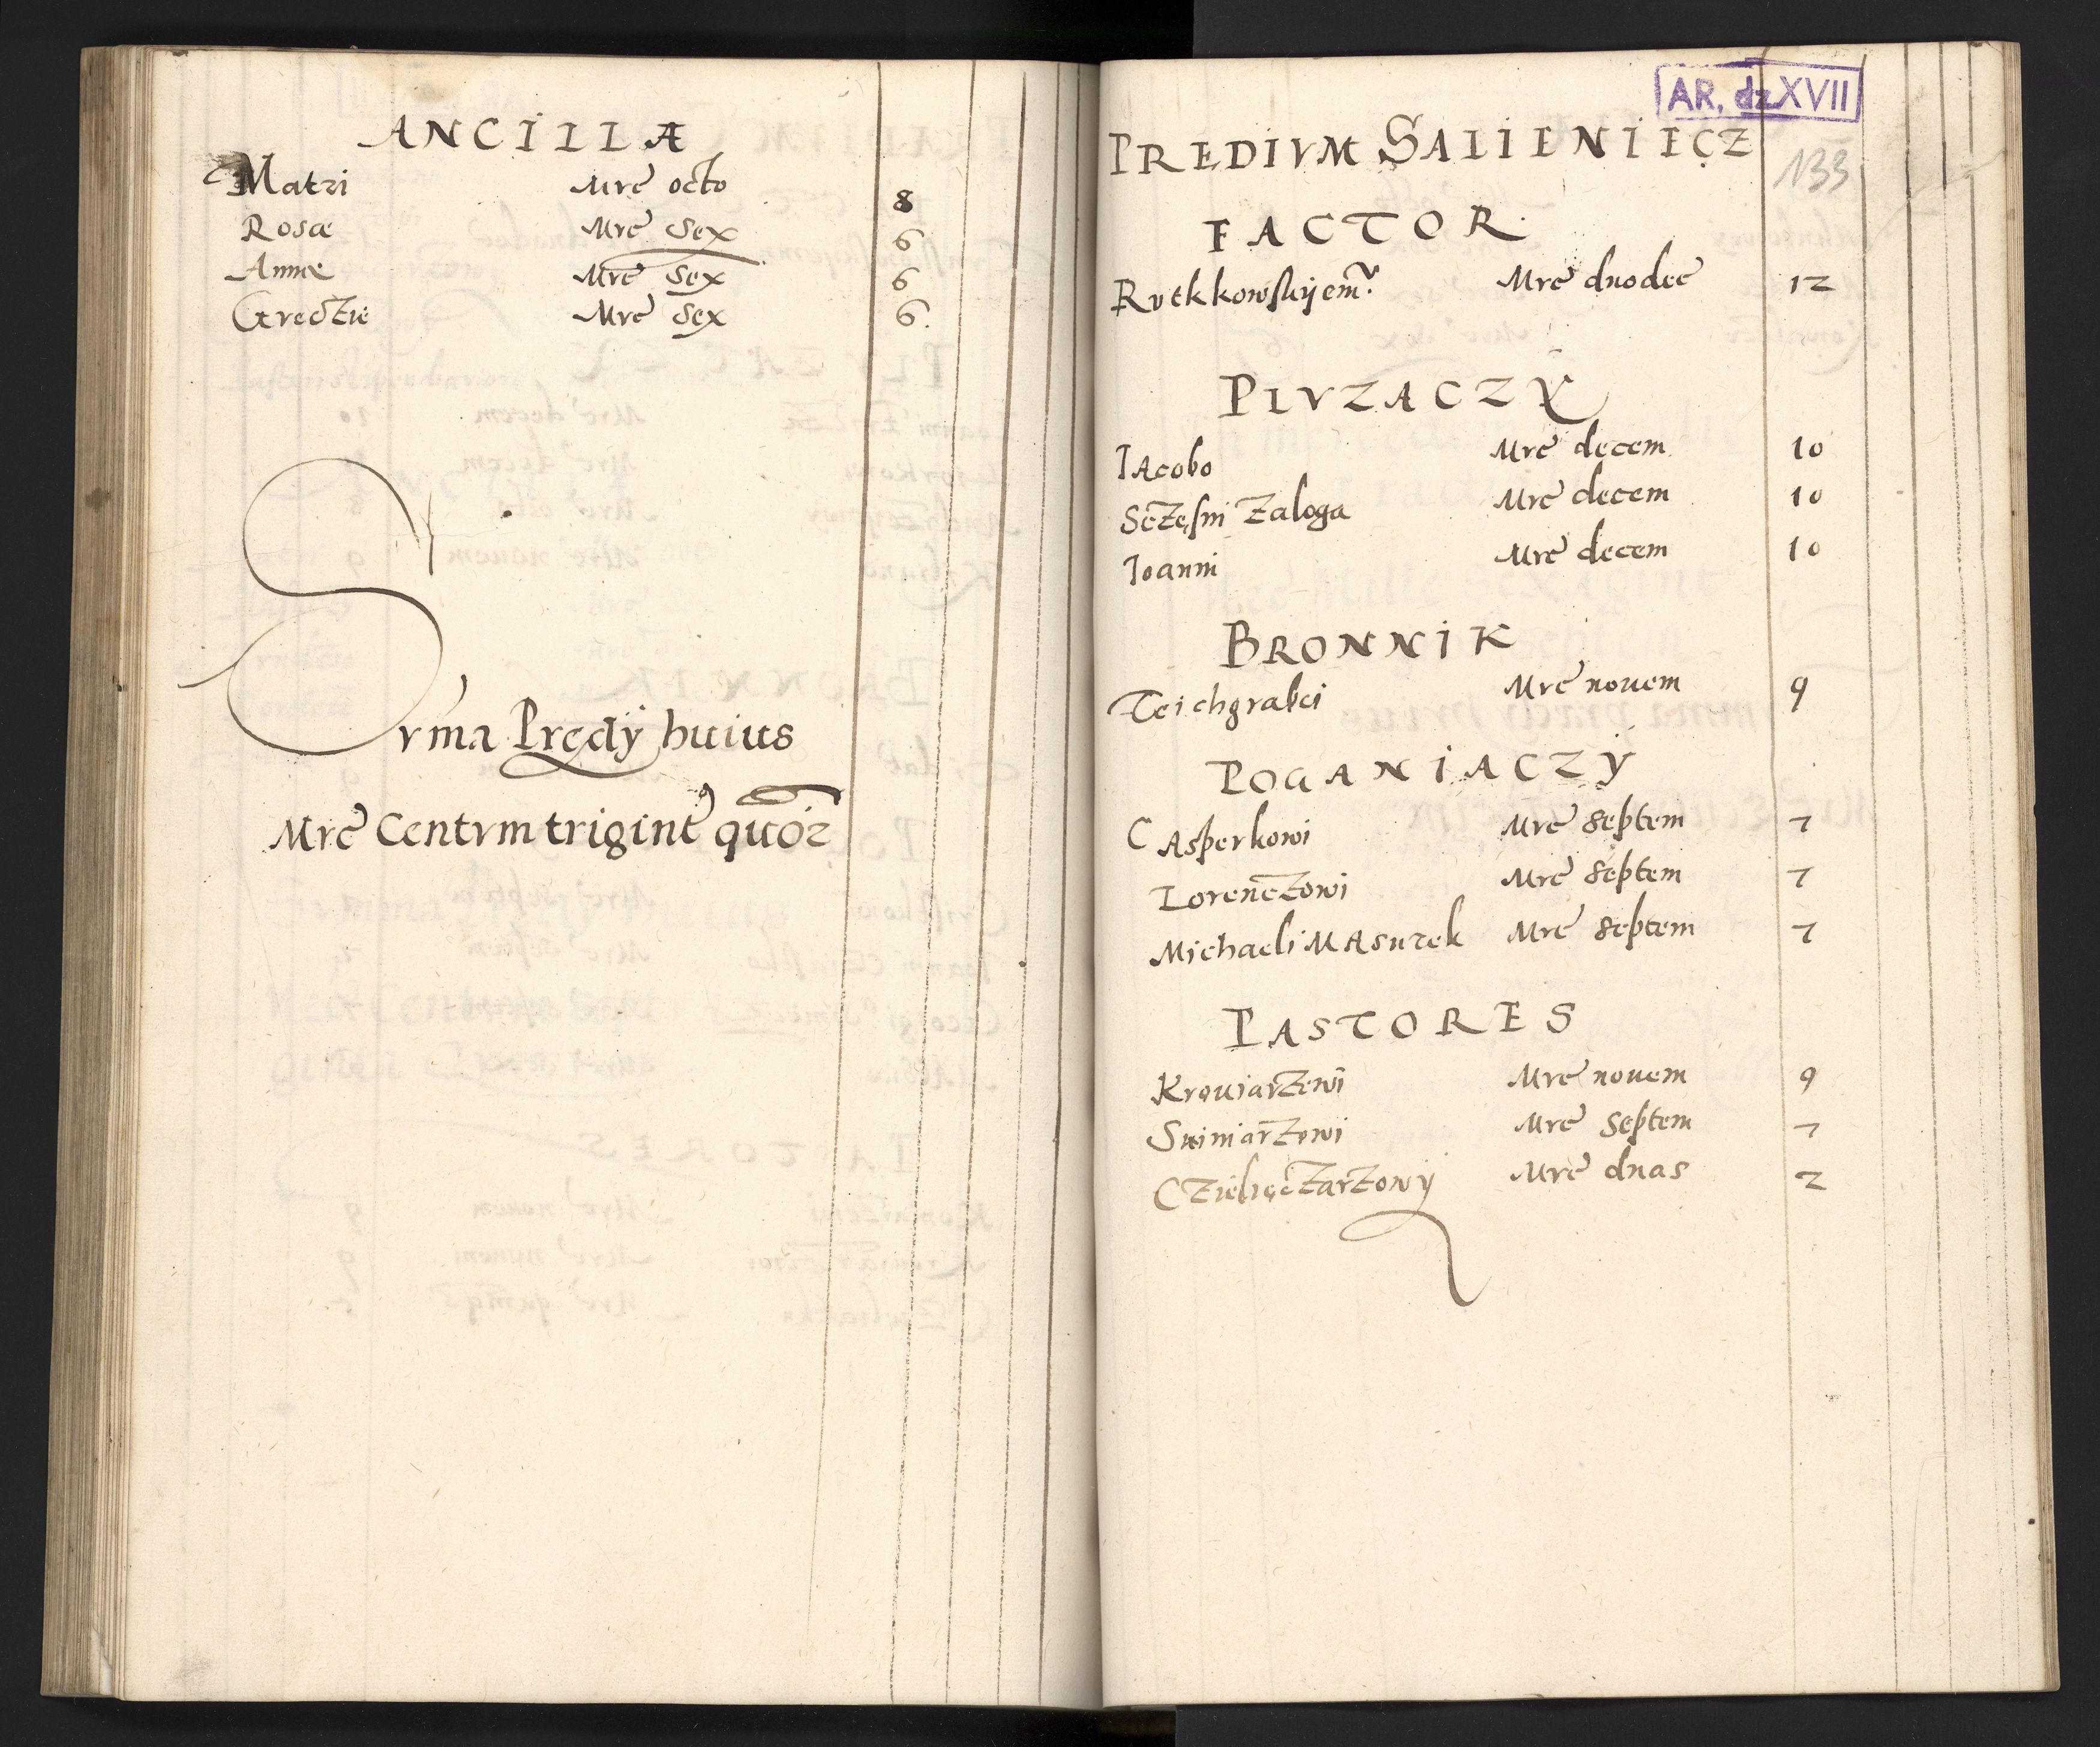 ANCILLÆ
Matri Mre octo 8
Rosæ Mre sex 6
Annæ Mre sex 6
Greczie Mre sex 6.
Svma Prędÿ huius
Mre Centvm triginte quor
AR, dz XVII
133
PREDIVM SALLIENIECZ
FACTOR
Rvtkkowskyem Mre duodec 12
PLVZACZY
IAcobo Mre decem 10
Sczęsni Zaloga Mre decem 10
Ioanni Mre decem 10
BRONNIK
Teichgrabci Mre nouem 9
POGANIACZŸ
CAsperkowi Mre septem 7
Lorenczowi Mre septem 7
Michaeli MAsurek Mre septem 7
PASTORES
Krowiarzewi Mre nouem 9
Swiniarzowi Mre septem 7
Czielięczarzowÿ Mre duas 2